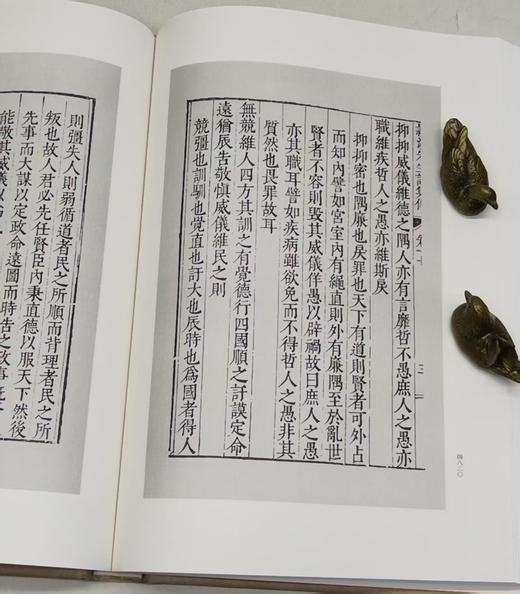 抑抑威儀維德之隅人亦有言靡哲不愚庶人之愚亦
職維疾哲人之愚亦維斯戾
抑抑密也隅廉也戾罪也天下有道則賢者可外占
而知內譬如宮室內有繩直則外有廉隅至於亂世
賢者不容則毀其威儀佯愚以辟禍故曰庶人之愚
亦其職耳譬如疾病雖欲免而不得哲人之愚非其
質然也畏罪故耳
無競維人四方其訓之有覺德行四國順之訏謨定命
遠猶辰告敬慎威儀維民之則
競彊也訓馴也覺直也訏大也辰時也為國者得人
則彊失人則弱循道者民之所順而背理者民之所
叛也故人君必先任賢臣內秉直德以服天下然後
先事而大謀以定政命遠圖而時告之故事
能敬其威儀以
四八二〇